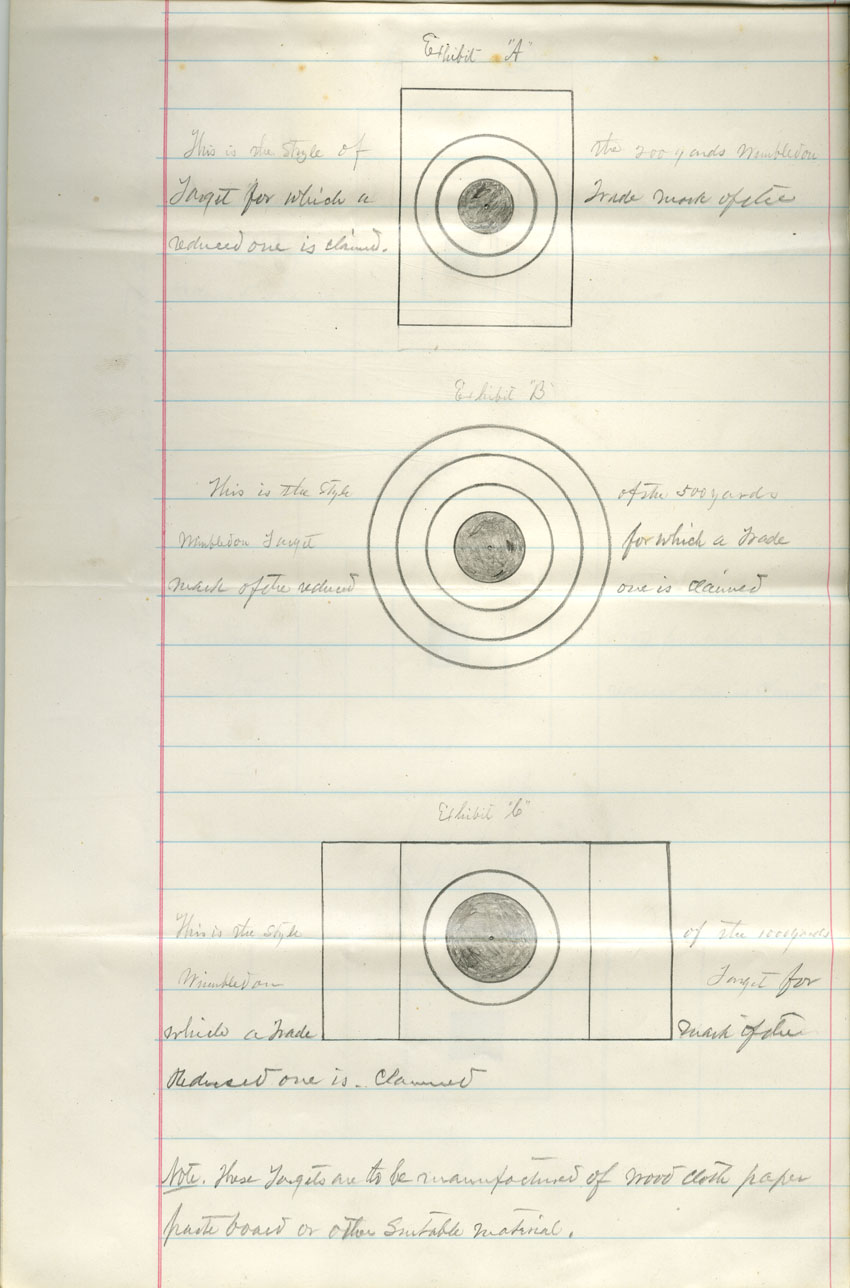 Exhibit "A"
This is the Style of the 200 yards Wimbledon
Target for which a Trade mark of the
reduced one is claimed.
Exhibit "B"
This is the Style of the 500 yards
Wimbledon Target for which a Trade
mark of the reduced one is claimed
Exhibit "C"
This is the Style of the 1000 yards
Wimbledon Target for
which a Trade mark of the
Reduced one is claimed
Note. These Targets are to be manufactured of wood cloth paper
paste board or other Suitable material.